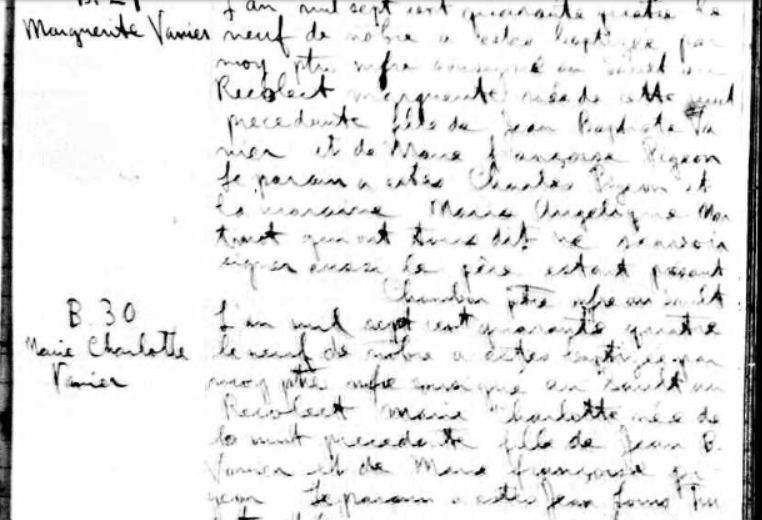 B. 29
L'an mil sept cent quarante quatre le
Marguerite Vanier
neuf de nobre a estes baptizée par
moy ptre msre sousigné au Sault au
Recolect marguerite née de cette nuit
precedente fille de Jean Baptiste Va
nier et de Marie françoise Pigeon
le parain a estes Charles Pigeon et
la maraine Marie Angelique
qui ont tous dit ne scavoir
signer aussi le père estant présent
Chambon ptre msre au Sault
B. 30
Marie Charlotte
Vanier
L'an mil sept cent quarante quatre
le neuf de nobre a estes baptizée par
moy ptre msre sousigné au Sault au
Recolect Marie Charlotte née de
la nuit precedente fille de Jean B.
Vanier et de Marie françoise Pi
geon le parain a estes Jean